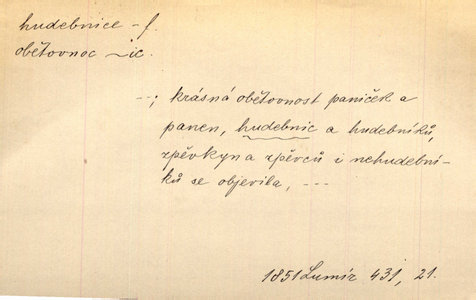 hudebnice – f.
obětovnoc ~ic
--; krásná obětovnost paniček a
panen, hudebnic a hudebníků,
zpěvkyn a zpěvců i nehudební-
ků se objevila, ---
1851 Lumír 431, 21.